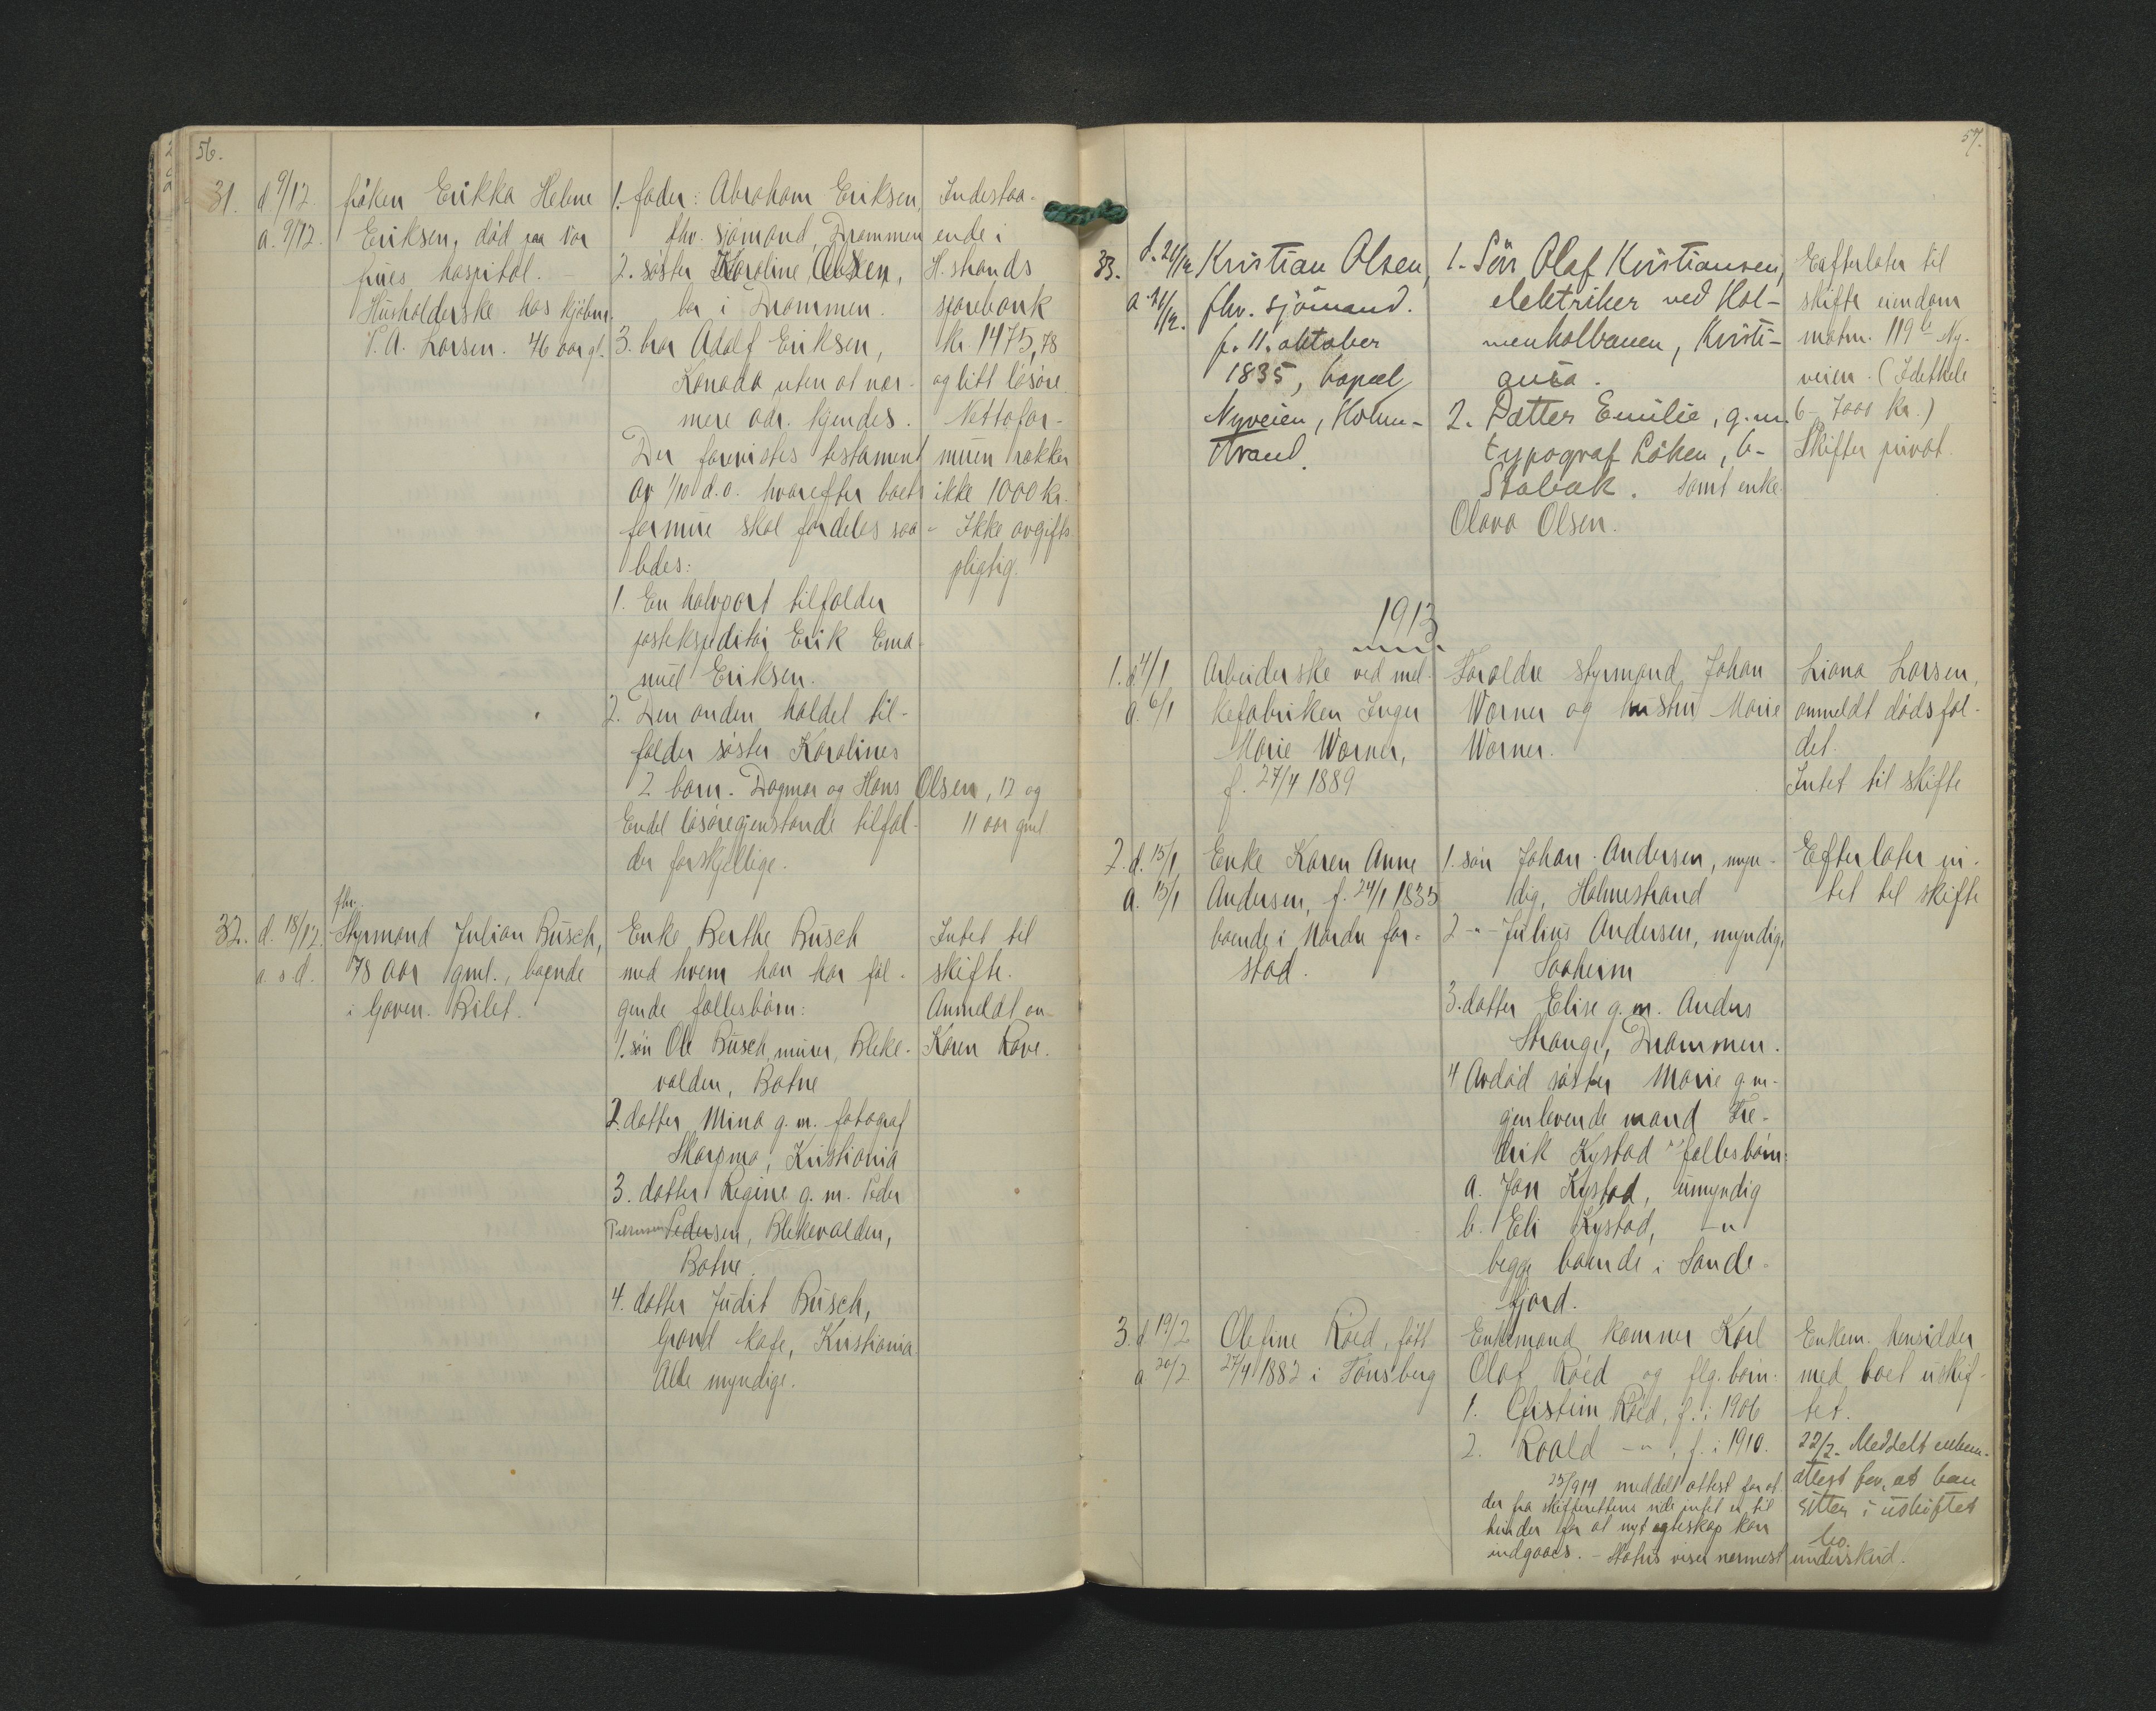 56.
31. d 9/12. fröken Erikka Helene
a. 9/12. Eriksen, död paa Vor
frues hospital. -
Husholderske hos kjöbm.
V. A. Larsen. 46 aar gl.
1. fader: Abraham Eriksen,
fhv. sjömand, Drammen
2. söster Karoline Olsen,
bor i Drammen.
3. bror Adolf Eriksen,
Kanada uten at nær-
mere adr. kjendes.
Der forevistes testament
av 1/10 d.a. hvorefter boets
formue skal fordeles saa-
ledes:
1. En halvpart tilfalder
postekspeditör Erik Ema-
nuel Eriksen.
2. Den anden halvdel til-
falder söster Karolines
2 barn. Dagmar og Hans Olsen, 12 og
11 aar gml.
Endel lösöregjenstande tilfal-
der forskjellige.
Indestaa-
ende i
H.strands
sparebank
kr 1475,78
og litt lösöre.
Nettofor-
muen rækker
ikke 1000 kr.
- Ikke avgifts
pligtig.
32. d. 18/12. fhv.
Styrmand Julian Busch,
a. s. d. 78 aar gml., boende
i Gaven. Rilet.
Enke Berthe Busch
med hvem han har föl-
gende fællesbörn:
1. sön Ole Busch, murer, Bleke-
valden, Botne
2. datter Mina g. m. fotograf
Skarpmo, Kristiania
3. datter Regine g. m. Peder
Pedersen, Blekevalden,
Botne.
4. datter Judit Busch,
Grand kafe, Kristiania.
Alle myndige.
Intet til
skifte.
Anmeldt av
Karen Rove.
57.
33. d. 21/12 Kristian Olsen,
a 21/12. fhv. sjömand.
f. 11. oktober
1835, bopæl
Nyveien, Holme-
strand.
1. Sön Olaf Kristiansen,
elektriker ved Hol-
menkolbanen, Kristi-
ania.
2. Datter Emilie, g. m.
typograf Löken, b-
Stabæk. Samt enke
Olava Olsen.
Eefterlater til
skifte eiendom
matrn. 119 b Ny-
veien. (Idethele
6- 7000 kr.)
Skifter privat.
1913
1. d. 4/1 Arbeiderske ved mel-
a. 6/1 kefabriken Inger
Marie Warner,
f. 27/4 1889
Foraldre styrmand Johan
Warner og hustru Marie
Warner.
Liana Larsen,
anmeldt dödsfal-
det.
Intet til skifte
2. d. 15/1 Enke Karen Anne
a. 15/1 Andersen, f. 24/1 1835
boende i Nordre for-
stad.
1. sön Johan Andersen, myn-
dig, Holmestrand
2 -"- Julius Andersen, myndig,
Saaheim
3. datter Elise g. m. Anders
Strange, Drammen.
4 Avdöd söster Marie g. m.
gjenlevende mand Fre-
drik Kystad fællesbörn:
a. Jon Kystad, umyndig
b. Eli Kystad, -"-
begge boende i Sande-
fjord.
Efterlater in-
tet til skifte
3. d 19/2 Olefine Röed, fött
a 20/2 27/4 1882 i Tönsberg
Enkemand kæmner Karl
Olaf Röed og flg. börn.
1. Öistein Röed, f. i 1906
2. Roald -"-, f. i 1910.
25/9 19 meddelt attest for at
der fra skifterettens side intet er til
hinder for at nyt egteskap kan
indgaaes. - Status viser nærmest underskud.
Enkem. hensidder
med boet uskif-
tet.
22/2. Meddelt enkem.
attest for, at han
sitter i uskiftet
bo.